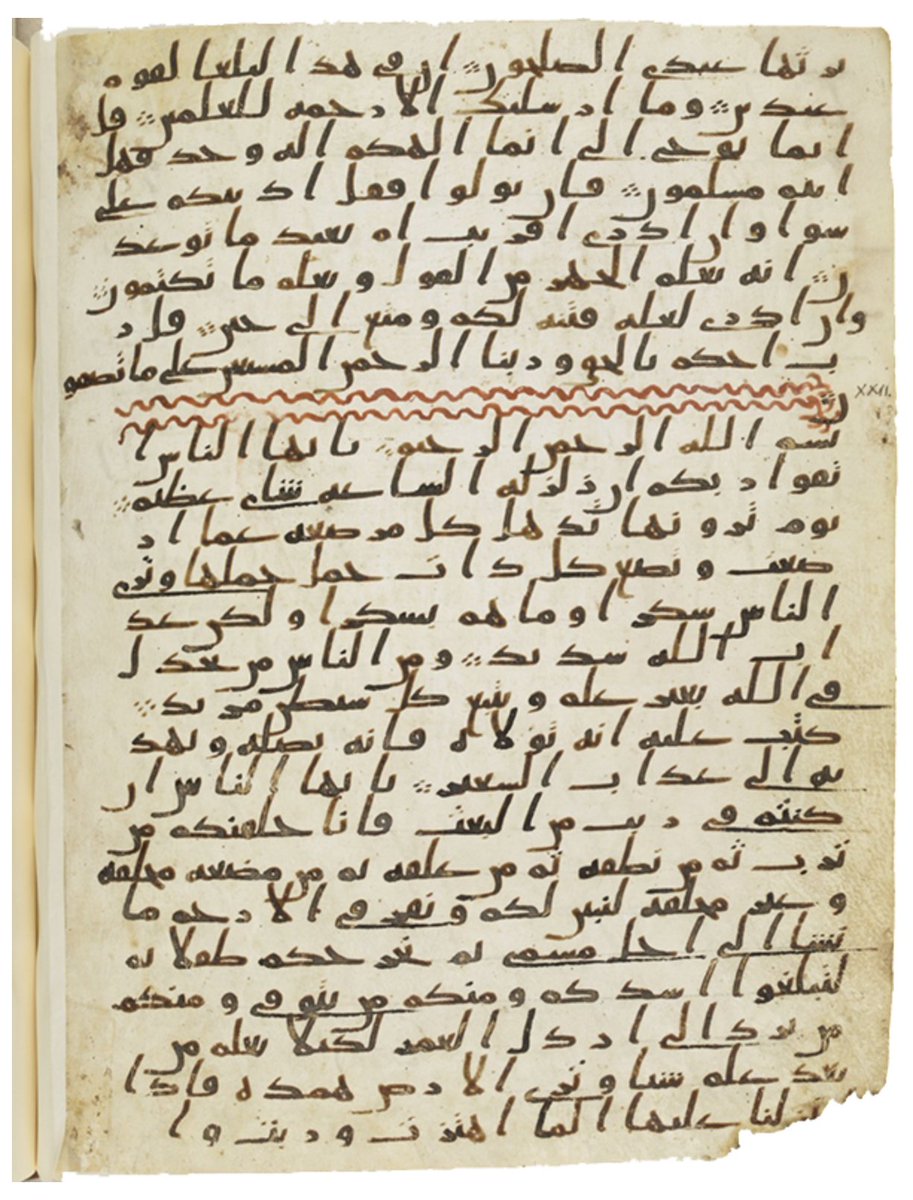 يرثها عبدي الصلحون ان في هذا لبلغا لقوم
عبدين وما ارسلنك الا رحمه للعلمين قل
انما يوحى الي انما الهكم اله وحد فهل
انتم مسلمون فان تولوا فقل اذنتكم على
سوا وان ادري اقريب ام بعيد ما توعد
ون انه يعلم الجهر من القول ويعلم ما تكتمون
وان ادري لعله فتنه لكم ومتع الى حين قل ر
ب احكم بالحق وربنا الرحمن المستعن على ما تصفو
ن XXII.
بسم الله الرحمن الرحيم يايها الناس ا
تقوا ربكم ان زلزله الساعه شاي عظيم
يوم ترونها تذهل كل مرضعه عما ار
ضعت وتضع كل ذات حمل حملها وترى
الناس سكرى وما هم بسكرى ولكن عذ
اب الله شديد ومن الناس من يجدل
في الله بغير علم ويتبع كل شيطن مريد
كتب عليه انه من تولاه فانه يضله ويهد
يه الى عذاب السعير يايها الناس ان
كنتم في ريب من البعث فانا خلقنكم من
ترب ثم من نطفه ثم من علقه ثم من مضغه مخلقه
وغير مخلقه لنبين لكم ونقر في الارحم ما
نشا الى اجل مسمى ثم نخرجكم طفلا ثم
لتبلغوا اشدكم ومنكم من يتوفى ومنكم
من يرد الى ارذل العمر لكيلا يعلم من
بعد علم شيا وترى الارض همده فاذا
انزلنا عليها الما اهتزت وربت وا